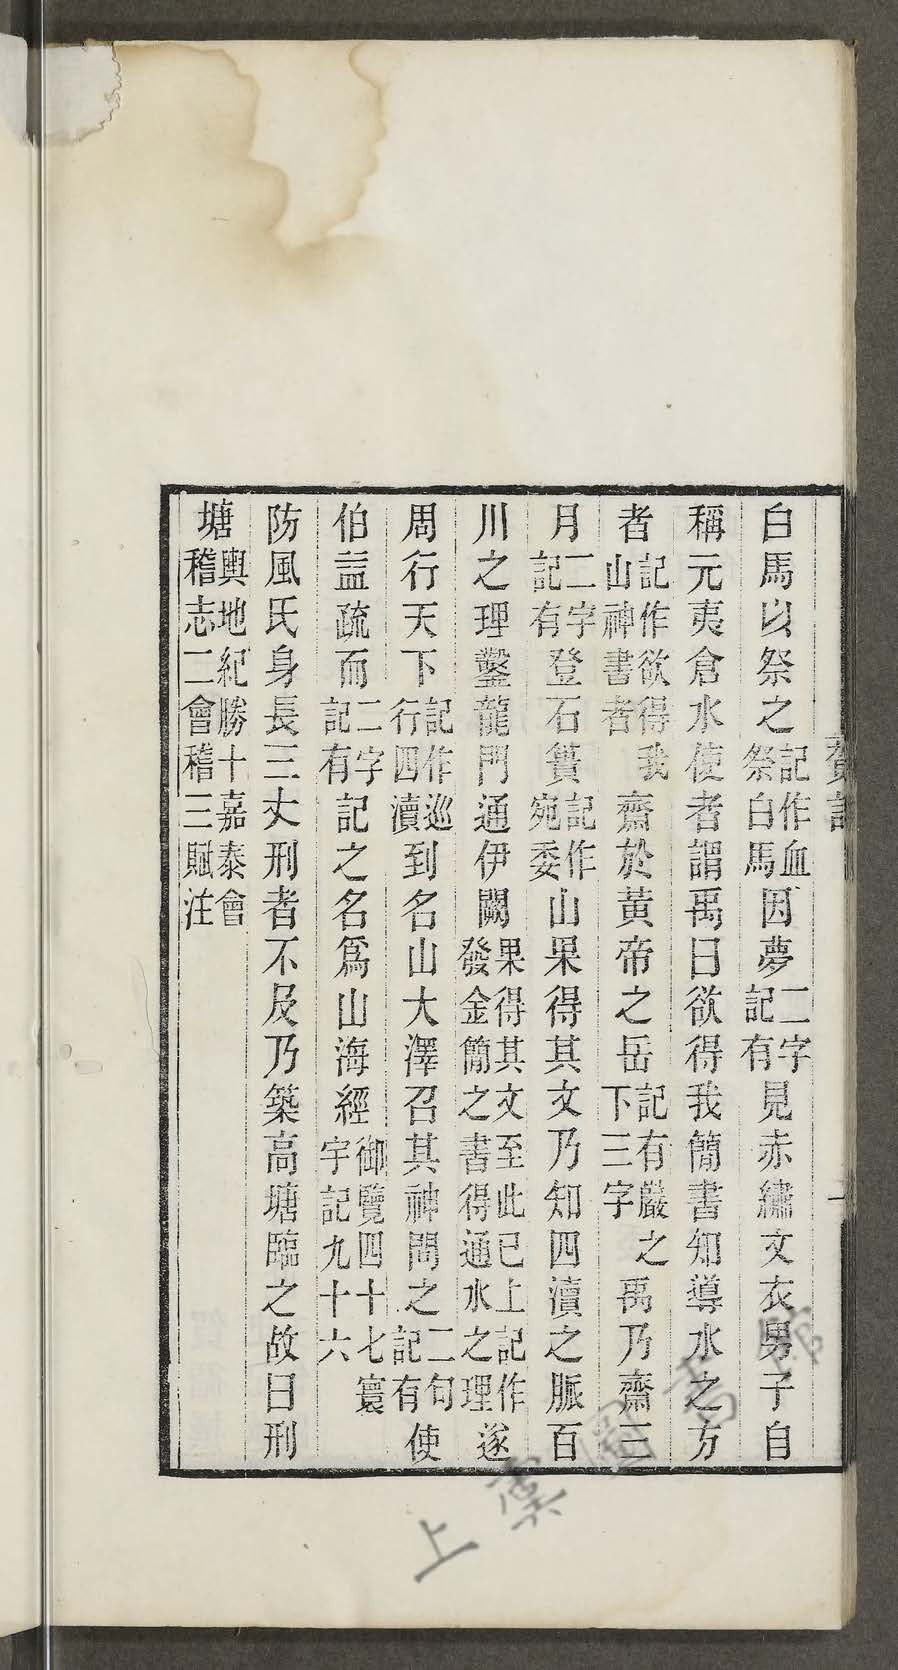 白馬以祭之記作血祭白馬因夢記有二字見赤繡文衣男子自
稱元夷倉水使者謂禹曰欲得我簡書知導水之方
者記作欲得我山神書者齋於黃帝之岳記有巖之下三字禹乃齋三
月記有二字登石簣記作宛委山果得其文乃知四瀆之脈百
川之理鑿龍門通伊闕果得其文至此已上記作發金簡之書得通水之理遂
周行天下記作巡行四瀆到名山大澤召其神問之記有二句使
伯益疏而記有二字記之名爲山海經御覽四十七寰宇記九十六
防風氏身長三丈刑者不及乃築高塘臨之故曰刑
塘輿地紀勝十嘉泰會稽志二會稽三賦注
賀記
一
上虞圖書館